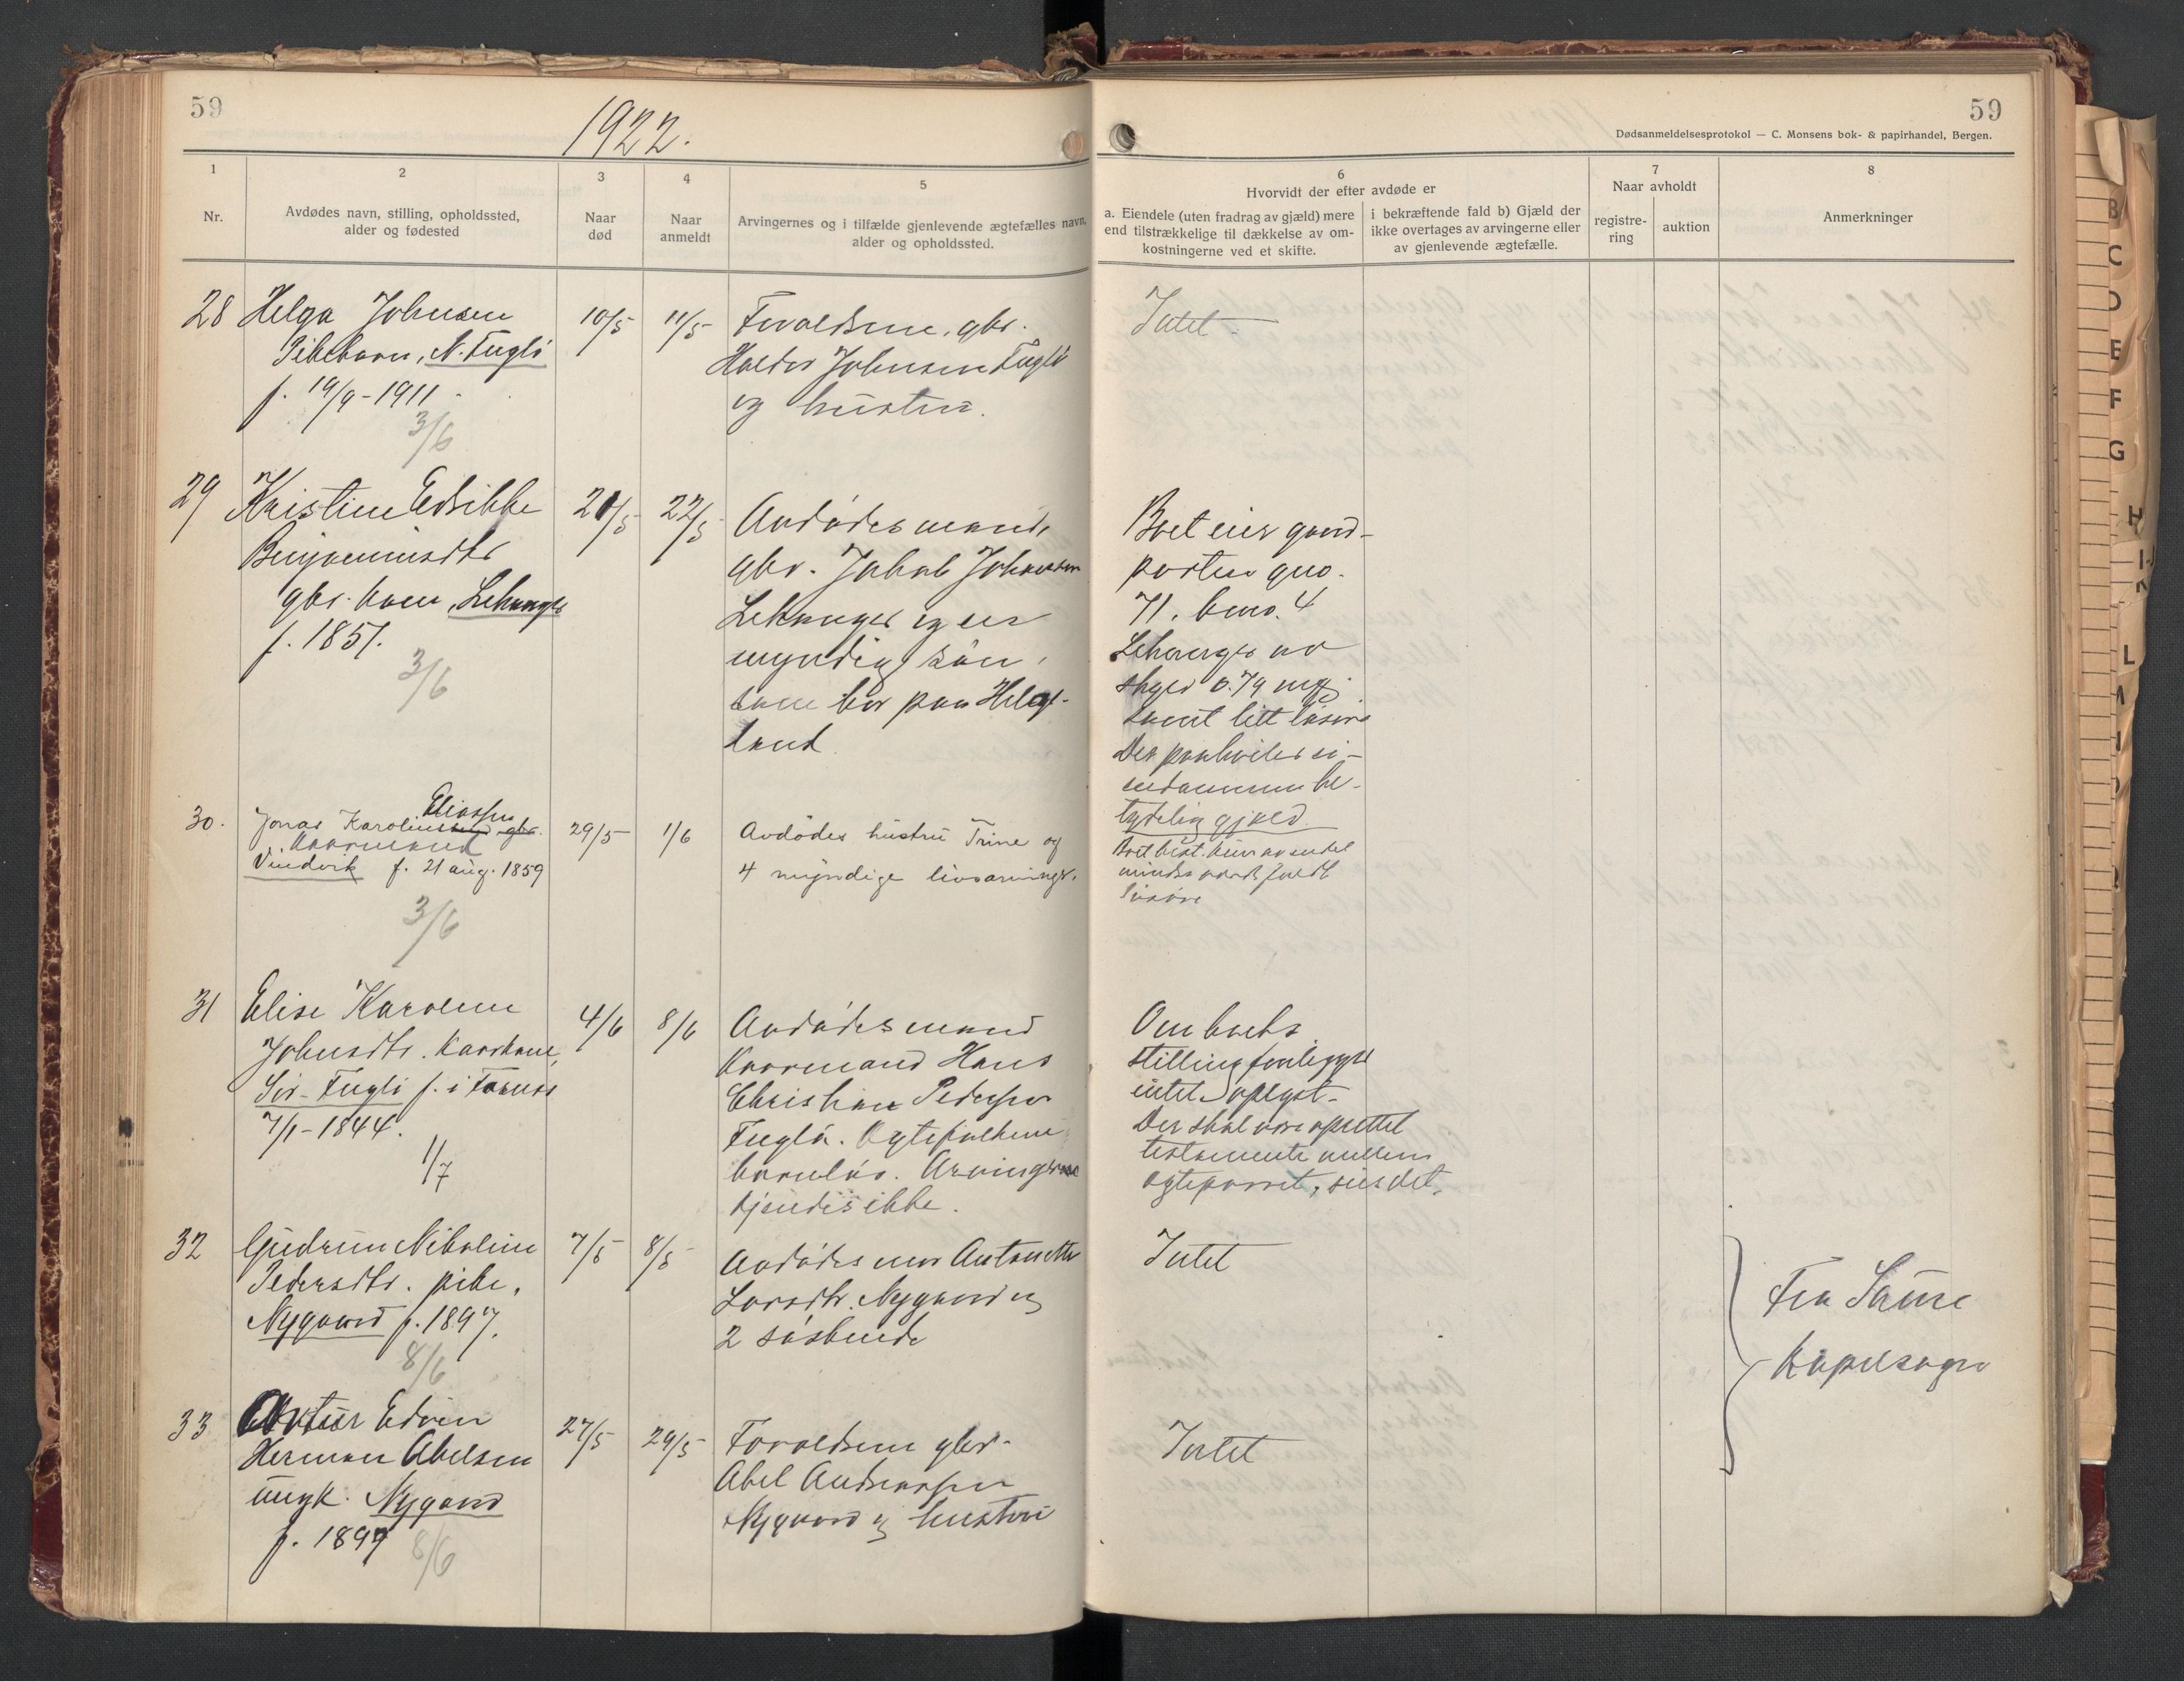 59
1922.
1
2
3
4
5
Nr.
Avdødes navn, stilling, opholdssted,
alder og fødested
Naar
død
Naar
anmeldt
Arvingernes og i tilfælde gjenlevende ægtefælles navn,
alder og opholdssted.
28 Helga Johnsen 10/5 11/5 Forældrene, gbr.
Pikebarn, N. Fuglø Haldor Johnsen Fuglø
f. 19/9-1911 og hustru.
3/6
29 Kristine Edsikke 21/5 22/5 Avdødes mand,
Benjaminsdtr gbr. Jakob Johansen
gbr. kone, Lekanger Lekanger og en
f. 1857. myndig søn,
3/6
som bor paa Helge-
land.
30. Jonas Karolius Eliassen gbr. 29/5 1/6 Avdødes hustru Trine og
Kaarmand
Vindvik f. 21 aug. 1859 4 myndige livsarvinger.
3/6
31 Elise Karoline 4/6 8/6 Avdødes mand
Johnsdtr. kaarkone, Kaarmand Hans
Sør-Fuglø f. i Fornes Christian Pedersen
7/1-1844. Fuglø. Ægtefolkene
1/7
barnløs. Arvingerne
kjendes ikke.
32 Gudrun Nikoline 7/5 8/5 Avdødes mor Antonette
Pedersdtr. pike, Larsdtr. Nygaard og
Nygaard f. 1897. 2 søskende
8/6
33 Artur Edvin 27/5 29/5 Forældrene gbr.
Herman Abelsen Abel Andreassen
ungk. Nygaard Nygaard og hustru
f. 1899
8/6
59
Dødsanmeldelsesprotokol — C. Monsens bok- & papirhandel, Bergen.
6
7
8
Hvorvidt der efter avdøde er
a. Eiendele (uten fradrag av gjæld) mere
end tilstrækkelige til dækkelse av om-
kostningerne ved et skifte.
i bekræftende fald b) Gjæld der
ikke overtages av arvingerne eller
av gjenlevende ægtefælle.
Naar avholdt
registre-
ring
auktion
Anmerkninger
Intet
Boet eier gaard-
parten gno.
71. bno. 4
Lekanger av
skyld 0.79 mg
samt litt løsøre
Der paahviler ei-
endommen be-
tydelig gjæld.
Boet best. kun av endel
mindre værdifuldt
løsøre
Om boets
stilling foreligger
intet oplyst.
Der skal være oprettet
testamente mellem
ægteparret, sies det.
Intet
Fra Sørre
Kapelsogn
Intet
B
C
D
E
F
G
H
L